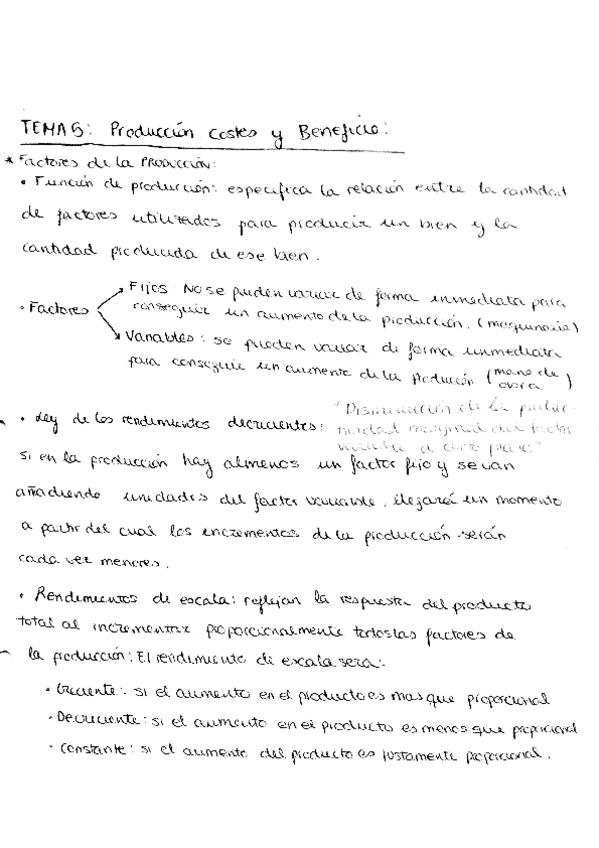 TEMA5: Producción costes y Beneficio:
* Factores de la PRODUCCIÓN:
• Función de producción: especifica la relación entre la cantidad
de factores utilizados para producir un bien y la
cantidad producida de ese bien.
• Factores
Fijos: No se pueden variar de forma inmediata para
conseguir un aumento de la producción. (maquinaria)
Variables: se pueden variar de forma inmediata
para conseguir un aumento de la producción (mano de
obra)
• Ley de los rendimientos decrecientes:
"Disminución de la produc-
tividad marginal del factor
variable a corto plazo"
si en la producción hay almenos un factor fijo y se van
añadiendo unidades del factor variable, llegará un momento
a partir del cual los incrementos de la producción serán
cada vez menores.
• Rendimientos de escala: reflejan la respuesta del producto
total al incrementar proporcionalmente todos los factores de
la producción: El rendimiento de escala será:
• Creciente: si el aumento en el producto es mas que proporcional
• Decreciente: si el aumento en el producto es menos que proporcional
• Constante: si el aumento del producto es justamente proporcional.